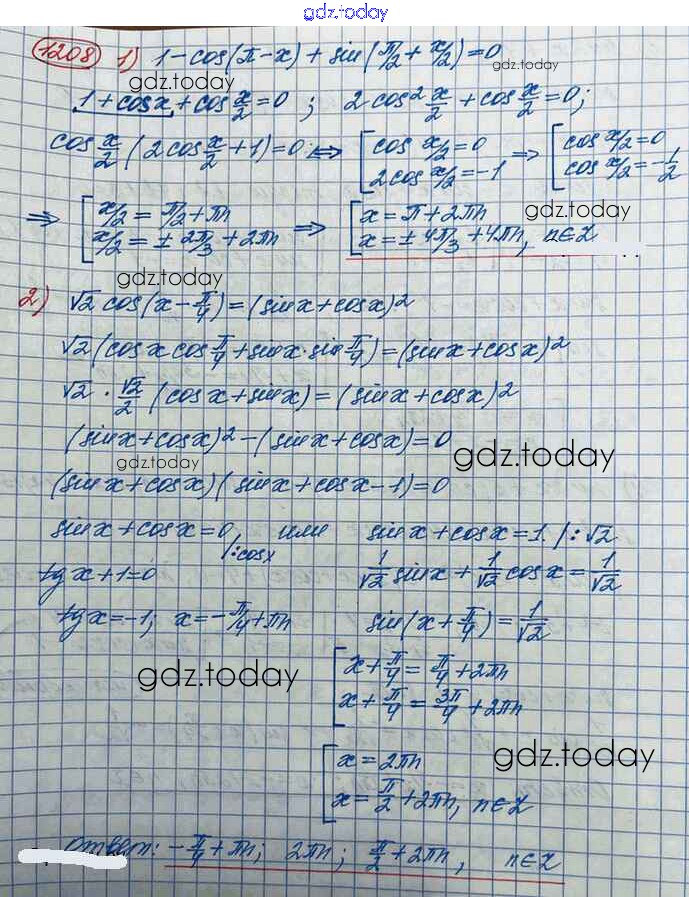 gdz.today
1208 1) 1-cos(π-x)+sin(π/2+x/2)=0
gdz.today gdz.today
1+cosx+cos x/2=0 ; 2cos² x/2+cos x/2=0;
cos x/2 (2cos x/2+1)=0 ⟺ [cos x/2=0 2cos x/2=-1 ⟹ [cos x/2=0 cos x/2=-1/2
⟹ [x/2=π/2+πn x/2=±2π/3+2πn ⟹ [x=π+2πn x=±4π/3+4πn, n∈Z
gdz.today
gdz.today
2) √2 cos(x-π/4)=(sinx+cosx)²
√2(cosx cos π/4+sinx·sin π/4)=(sinx+cosx)²
√2·√2/2 (cosx+sinx)=(sinx+cosx)²
(sinx+cosx)²-(sinx+cosx)=0
gdz.today gdz.today
(sinx+cosx)(sinx+cosx-1)=0
sinx+cosx=0 |:cosx или sinx+cosx=1. |:√2
tgx+1=0 1/√2 sinx+1/√2 cosx=1/√2
tgx=-1; x=-π/4+πn sin(x+π/4)=1/√2
gdz.today
[x+π/4=π/4+2πn
x+π/4=3π/4+2πn
gdz.today
[x=2πn
x=π/2+2πn, n∈Z
Ответ: -π/4+πn; 2πn; π/2+2πn, n∈Z